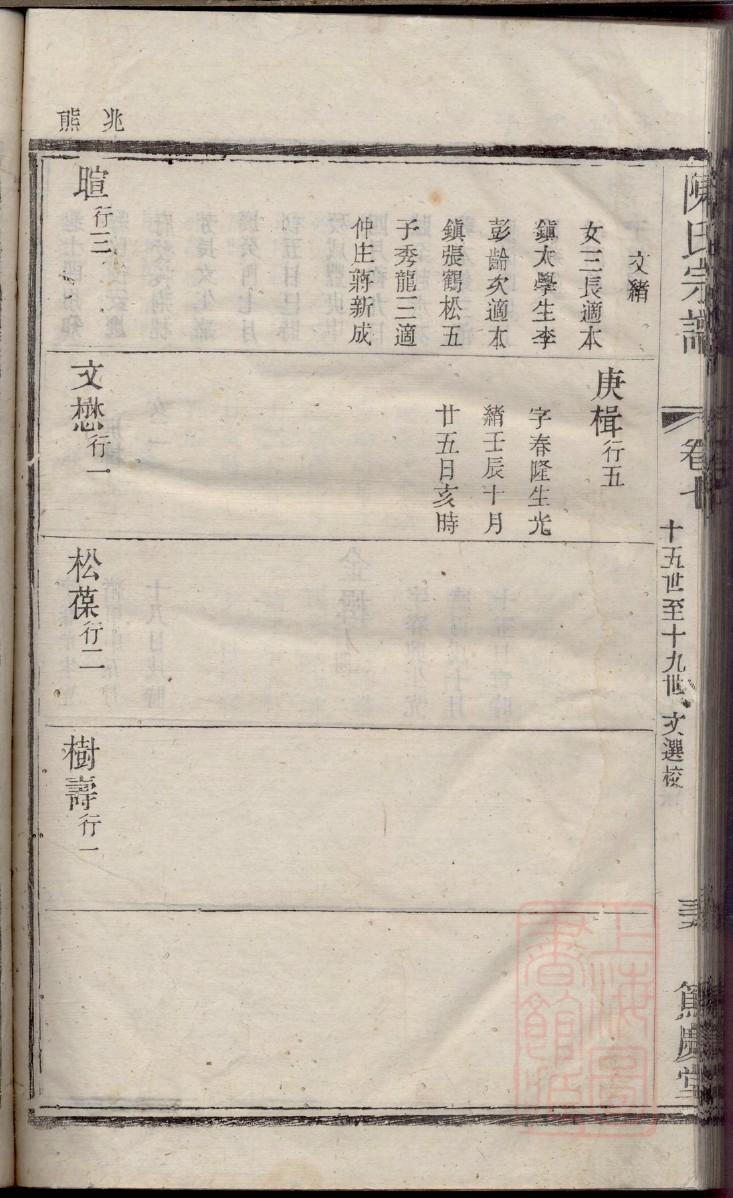 陳氏宗譜
卷七
十五世至十九世 文選校
篤慶堂
兆熊
文緒
女三長適本
鎮太學生李
彭齡次適本
鎮張鶴松五
子秀龍三適
仲庄蔣新成
暄行三
庚楫行五
字春隆生光
緒壬辰十月
廿五日亥時
文懋行一
松葆行二
樹壽行一
上海圖書館藏